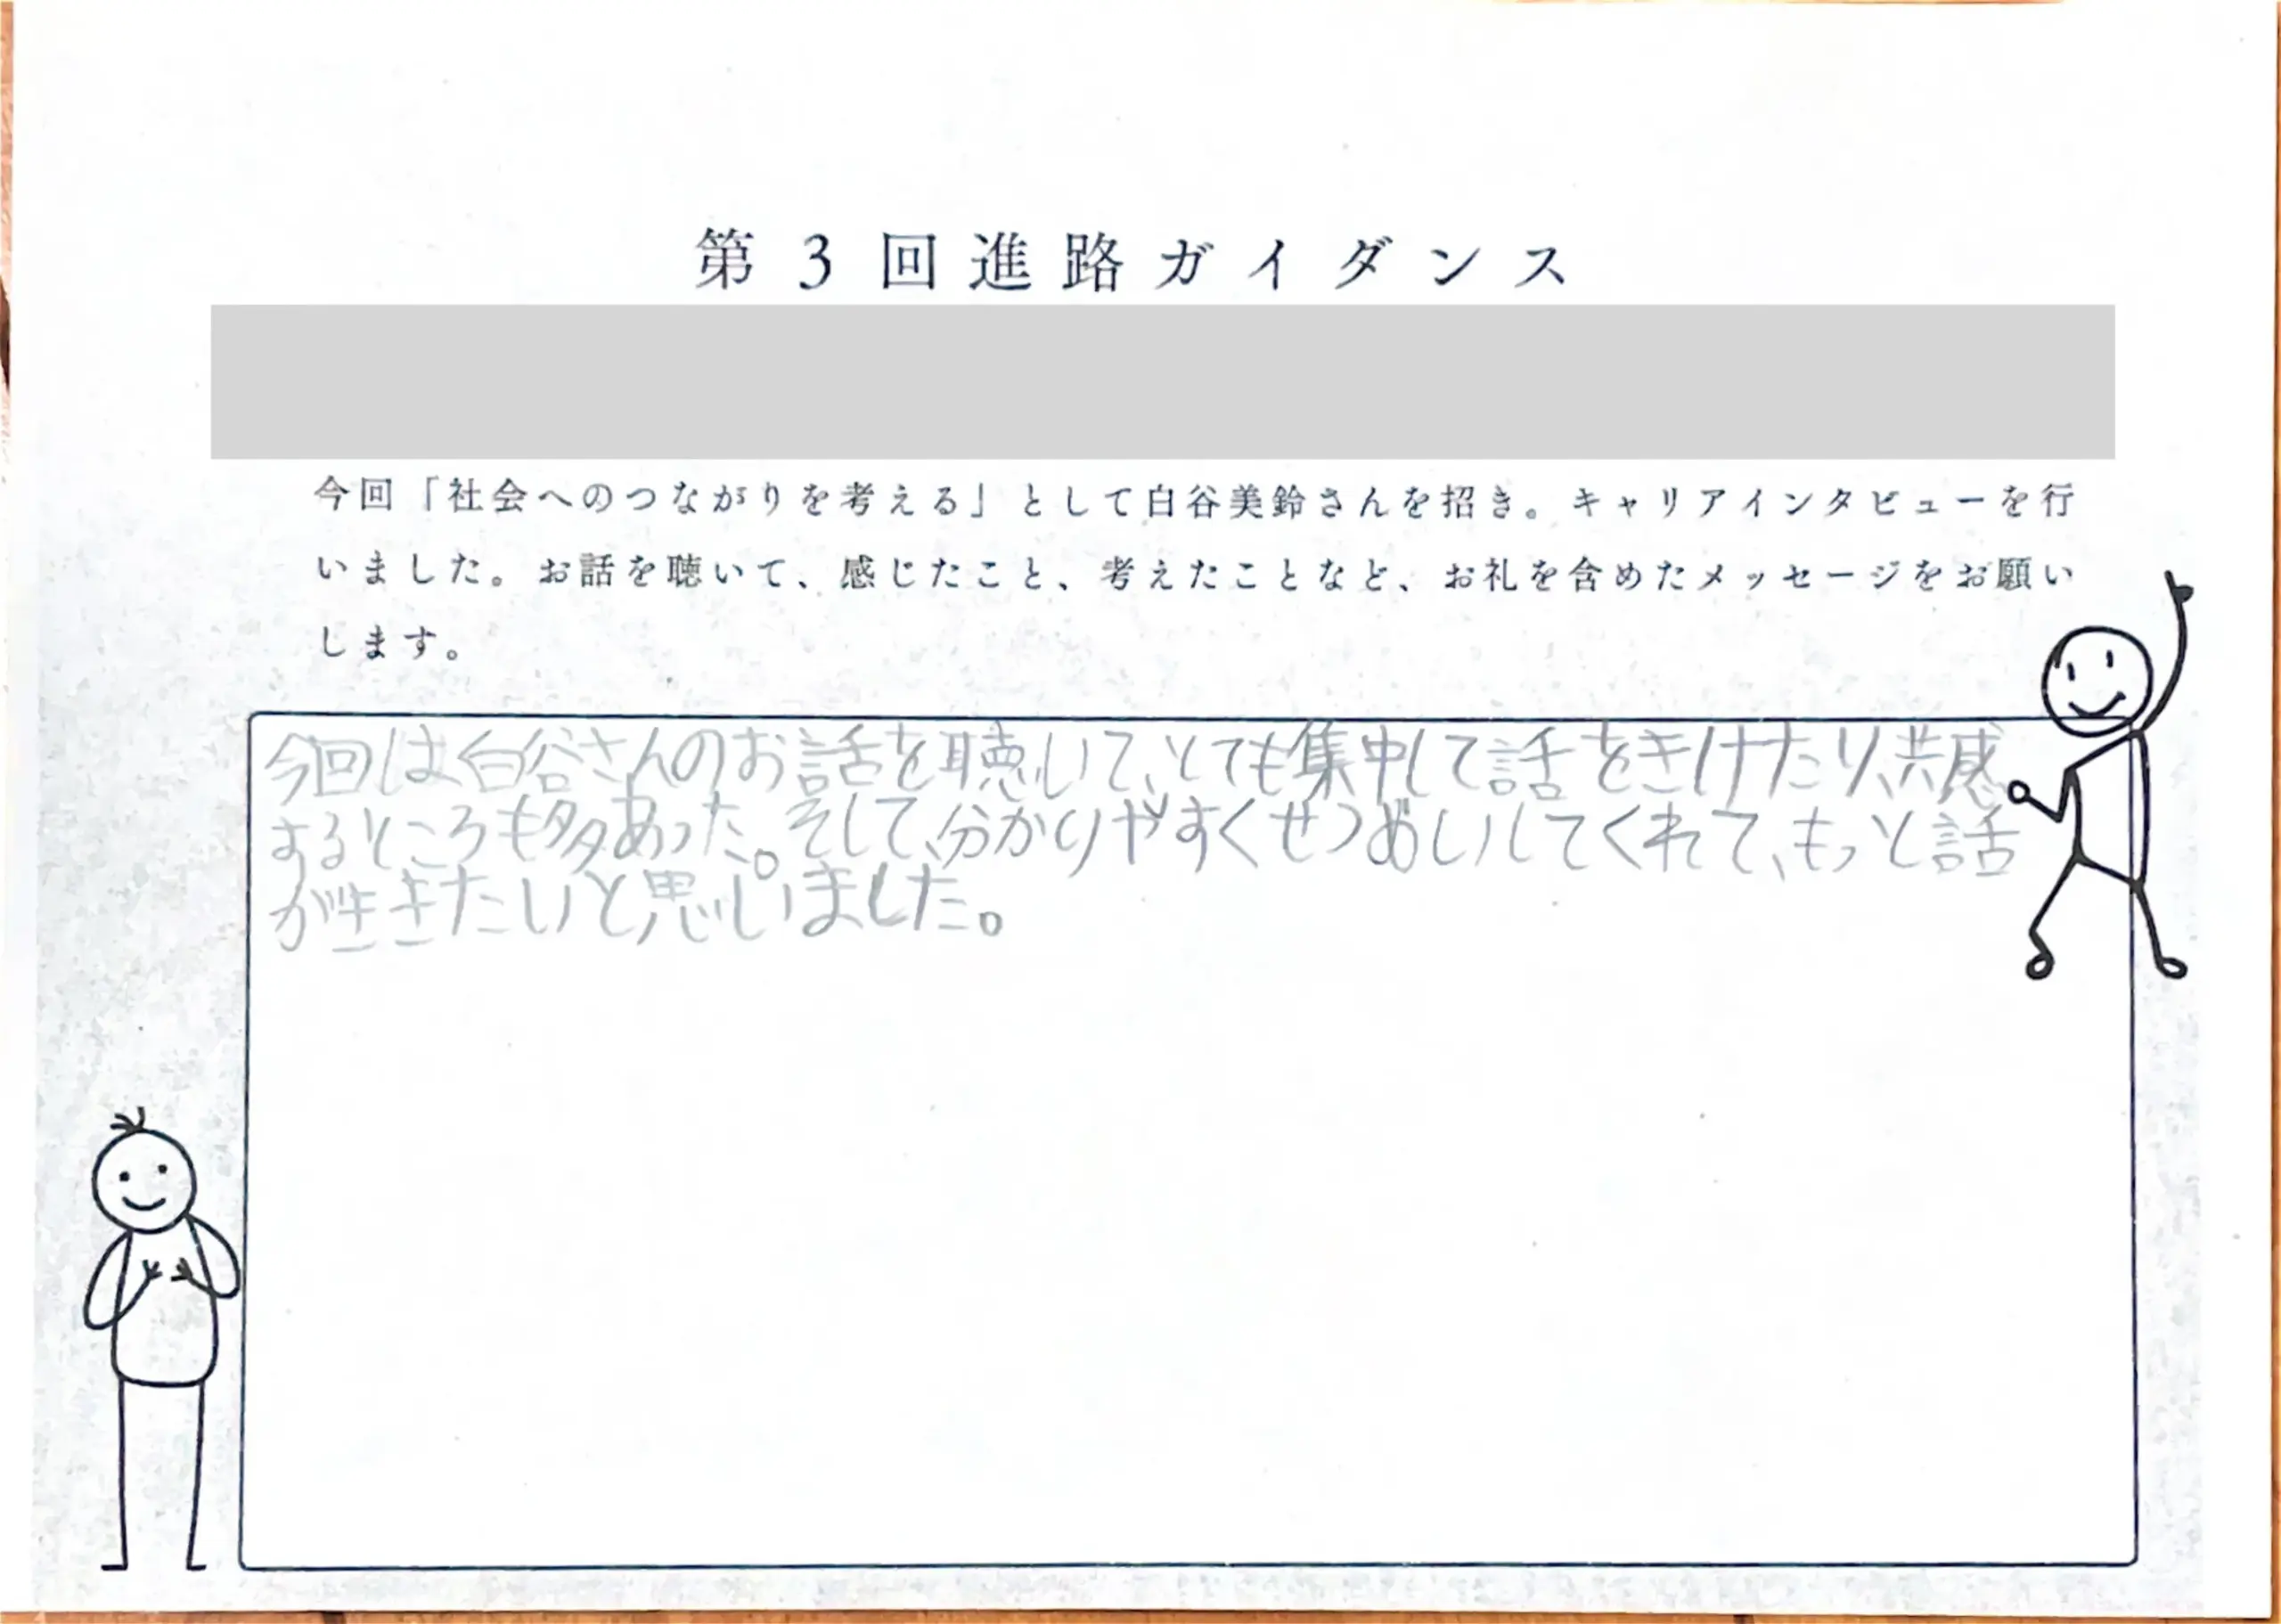 第3回進路ガイダンス
今回「社会へのつながりを考える」として白谷美鈴さんを招き。キャリアインタビューを行
いました。お話を聴いて、感じたこと、考えたことなど、お礼を含めたメッセージをお願い
します。
今回は白谷さんのお話を聴いて、とても集中して話をきけたり、共感
するところも多あった。そして、分かりやすくせつめいしてくれて、もっと話
がききたいと思いました。